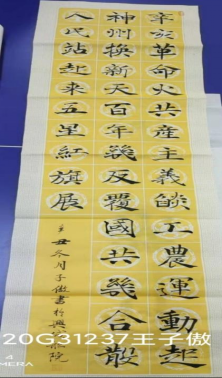 辛亥革命火共産主義燄工農運動起
神州換新天百年幾反覆國共幾合散
人民站起来五星紅旗展
辛丑冬月子傲書於興院
20G31237王子傲
4
MERA